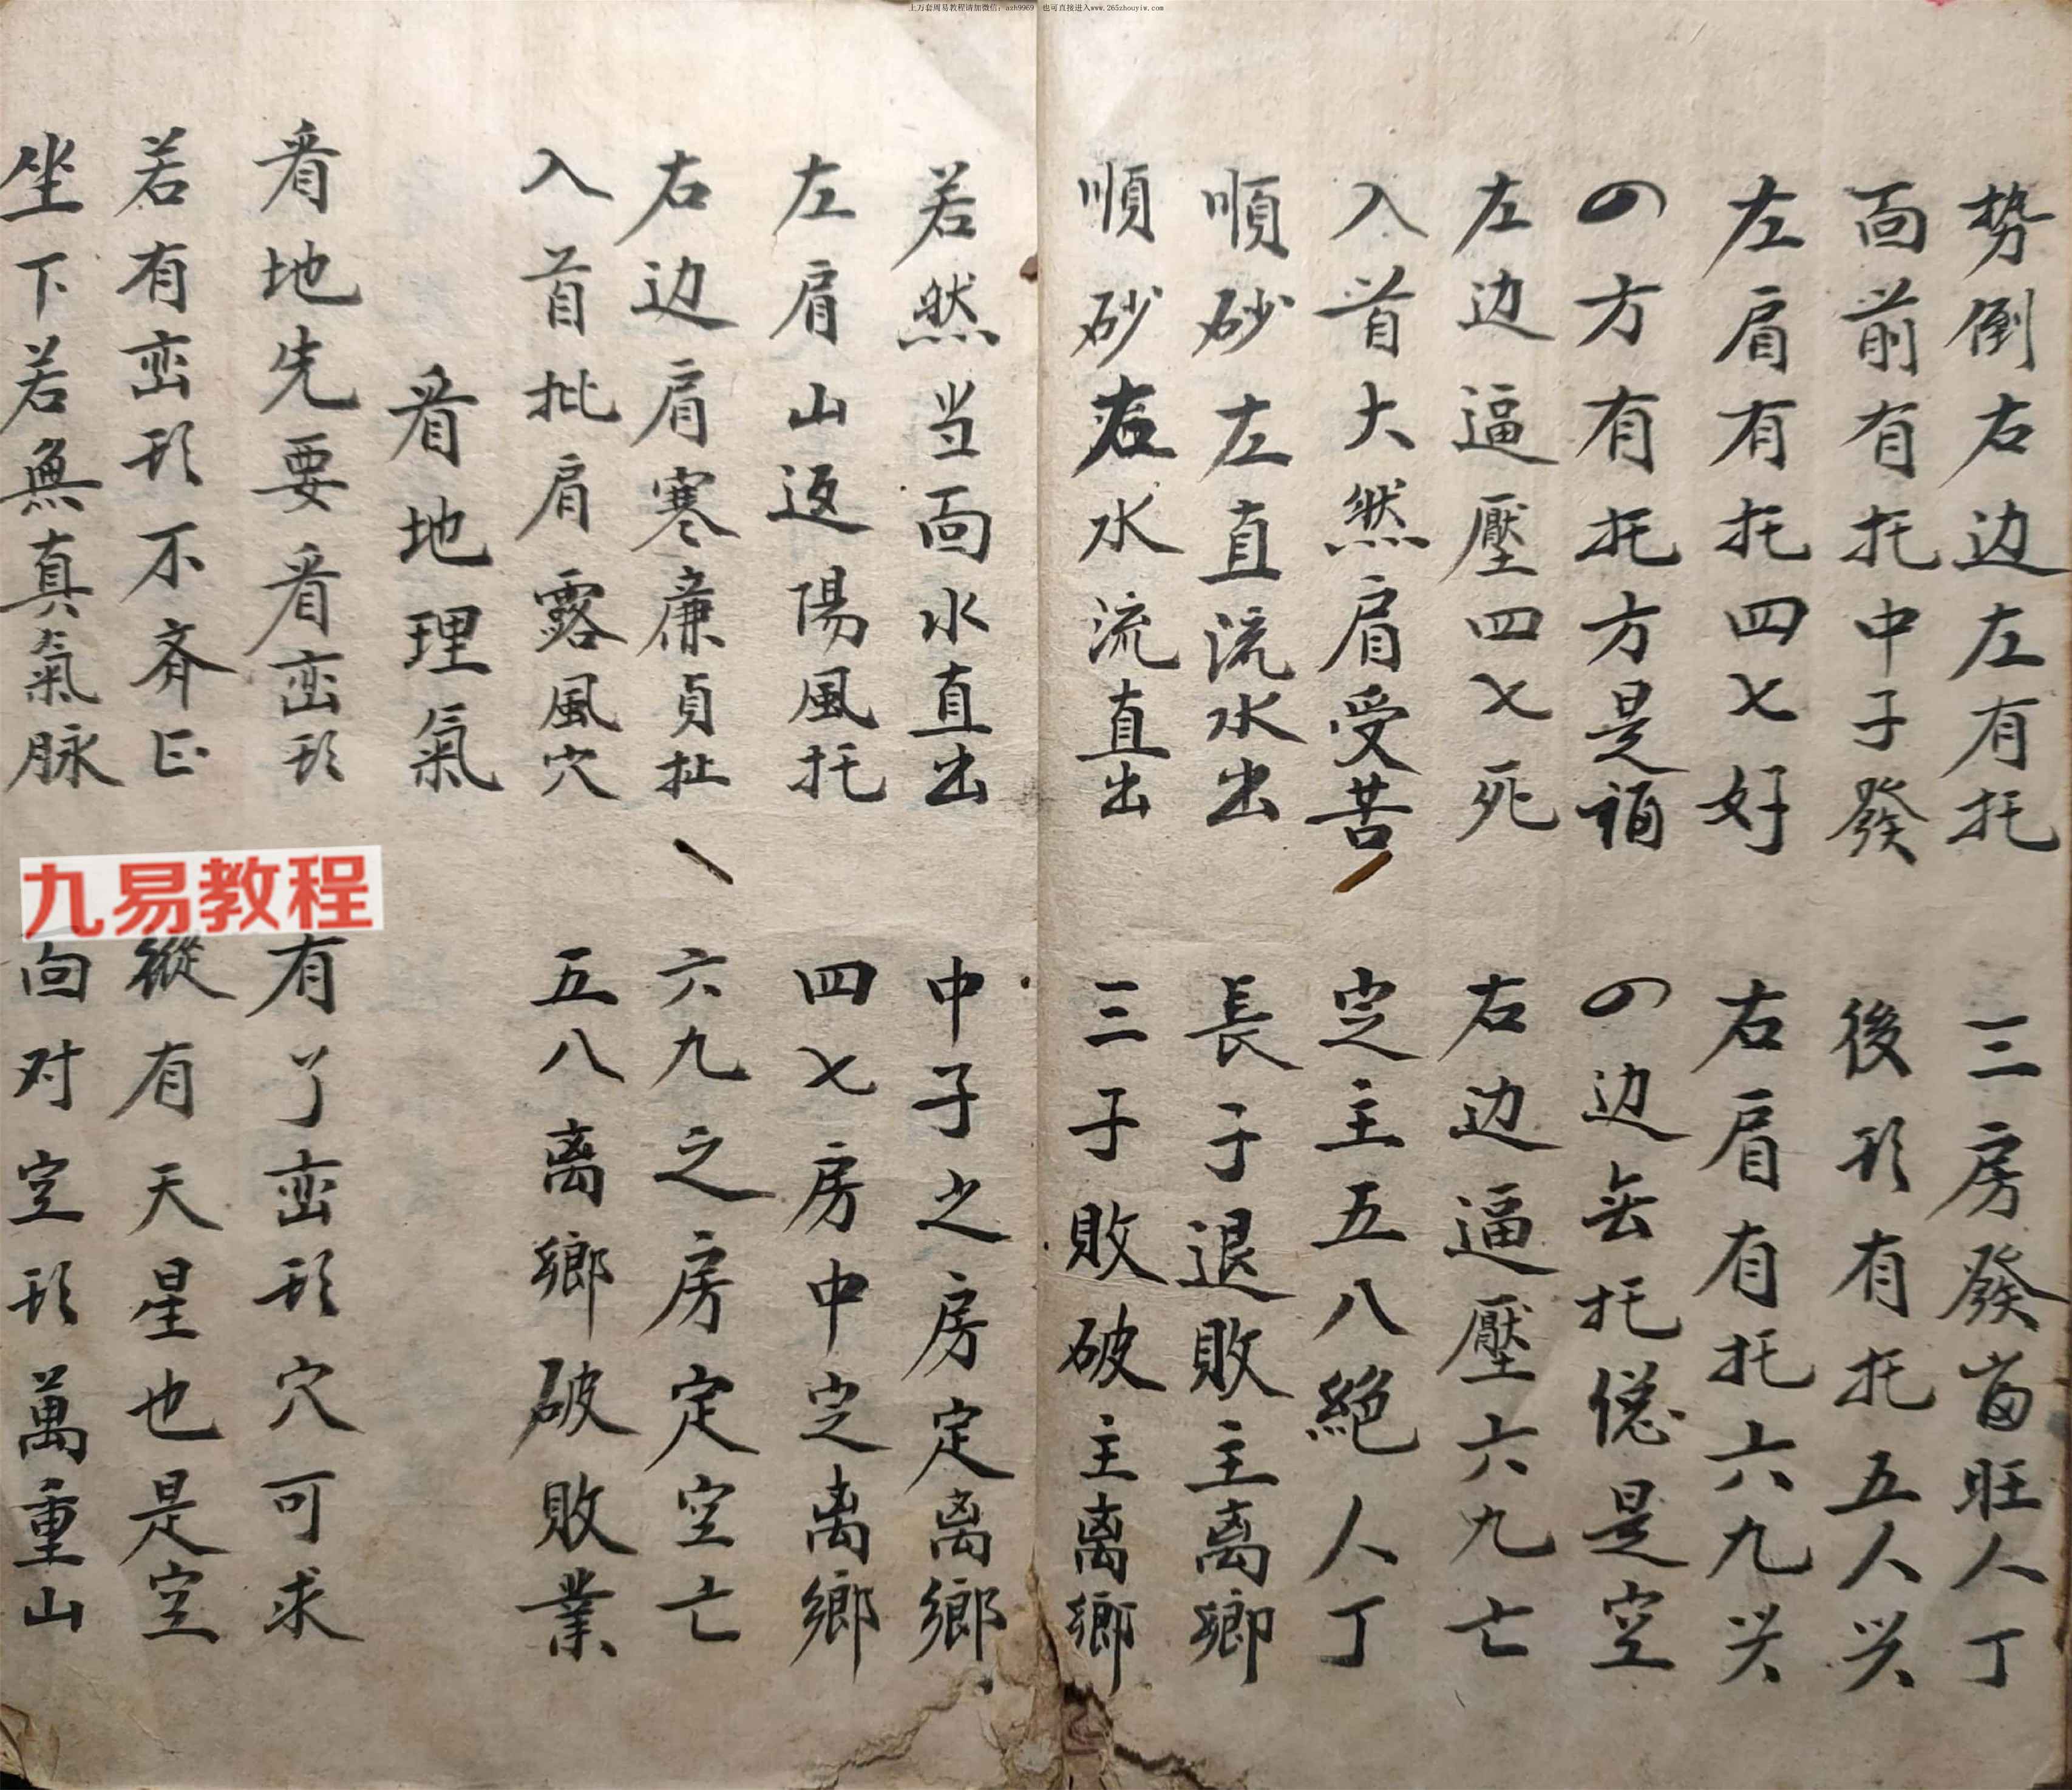 上万套周易教程请加微信：azh9969 也可直接进入www.265zhouyiw.com
势倒右边左有托 三房發富旺人丁
面前有托中子發 後形有托五人兴
左肩有托四七好 右肩有托六九兴
四方有托方是福 四边无托总是空
左边逼壓四七死 右边逼壓六九亡
入首大然肩受苦 定主五八絕人丁
順砂左直流水出 長子退敗主离鄉
順砂右水流直出 三子敗破主离鄉
若然当面水直出 中子之房定离鄉
左肩山返陽風托 四七房中定离鄉
右边肩寒廉貞扯 六九之房定空亡
入首批肩露風穴 五八离鄉破敗業
看地理氣
看地先要看峦形 有了峦形穴可求
若有峦形不斉正 縱有天星也是空
坐下若無真氣脉 向对空形萬重山
九易教程